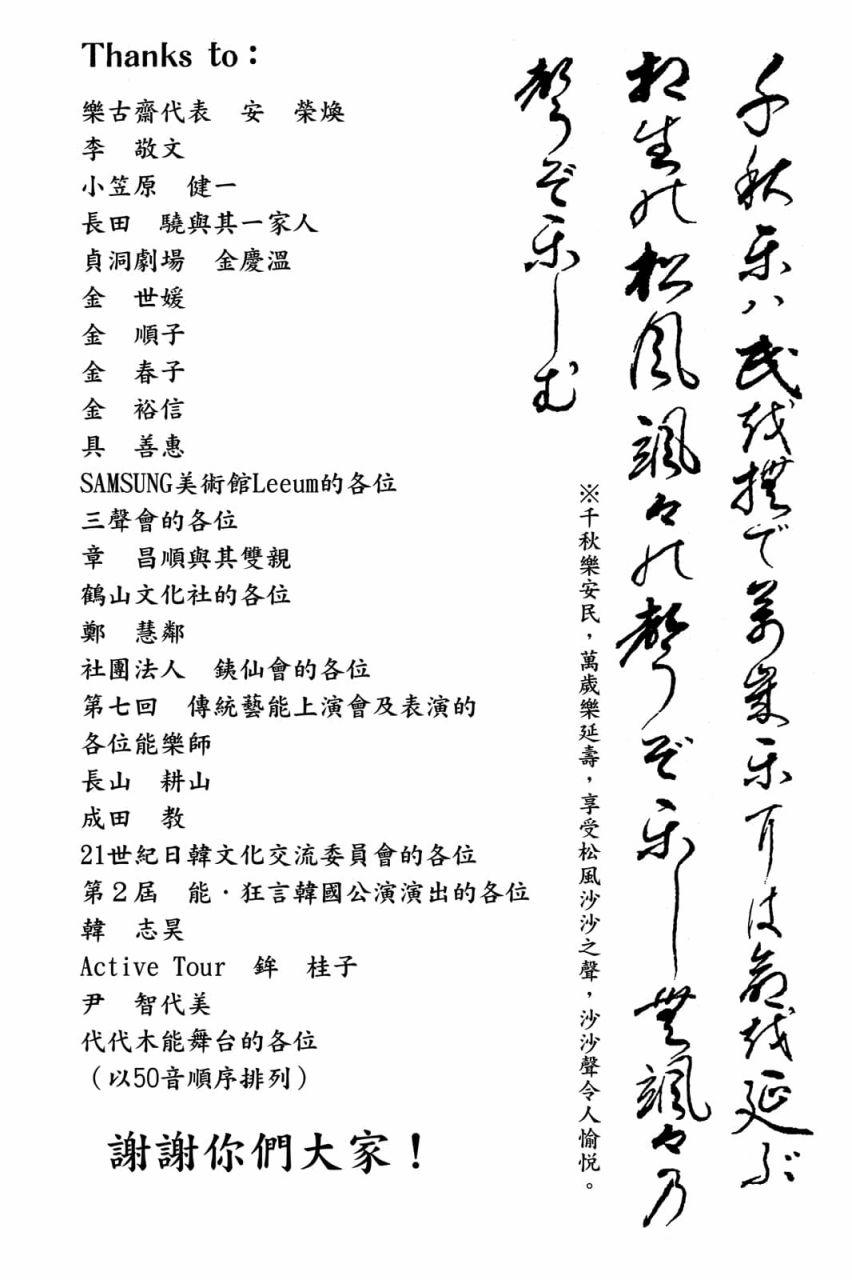 Thanks to：
樂古齋代表　安　榮煥
李　敬文
小笠原　健一
長田　驍與其一家人
貞洞劇場　金慶溫
金　世媛
金　順子
金　春子
金　裕信
具　善惠
SAMSUNG美術館Leeum的各位
三聲會的各位
章　昌順與其雙親
鶴山文化社的各位
鄭　慧鄰
社團法人　銕仙會的各位
第七回　傳統藝能上演會及表演的
各位能樂師
長山　耕山
成田　教
21世紀日韓文化交流委員會的各位
第２屆　能・狂言韓國公演演出的各位
韓　志昊
Active Tour　鉾　桂子
尹　智代美
代代木能舞台的各位
（以50音順序排列）
謝謝你們大家！
千秋乐ハ民越撫で萬歳乐尓は命越延ぶ
相生能松風颯々能聲ぞ乐し無颯々乃
聲ぞ乐しむ
※千秋樂安民，萬歲樂延壽，享受松風沙沙之聲，沙沙聲令人愉悅。